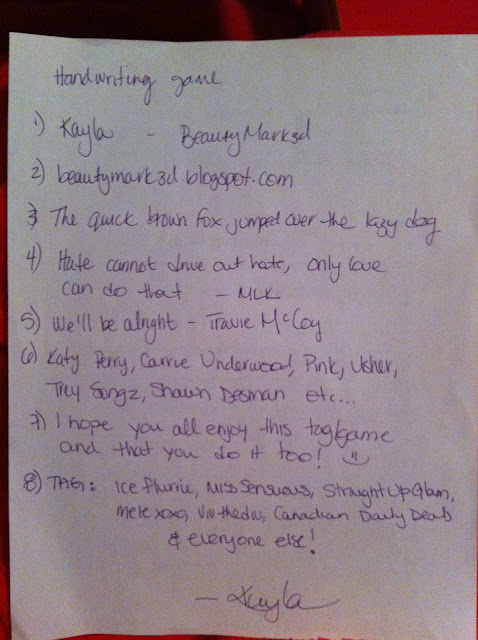 Handwriting game
1) Kayla - BeautyMark3d
2) beautymark3d.blogspot.com
3) The quick brown fox jumped over the lazy dog
4) Hate cannot drive out hate, only love
can do that - MLK
5) We'll be alright - Travie McCoy
6) Katy Perry, Carrie Underwood, Pink, Usher,
Trey Songz, Shawn Desman etc...
7) I hope you all enjoy this tag/game
and that you do it too!
8) TAG: Ice Plume, Miss Sensuous, Straight Up Glam,
Mele xoxo, Viv the diu, Canadian Daily Deals
& everyone else!
- Kayla